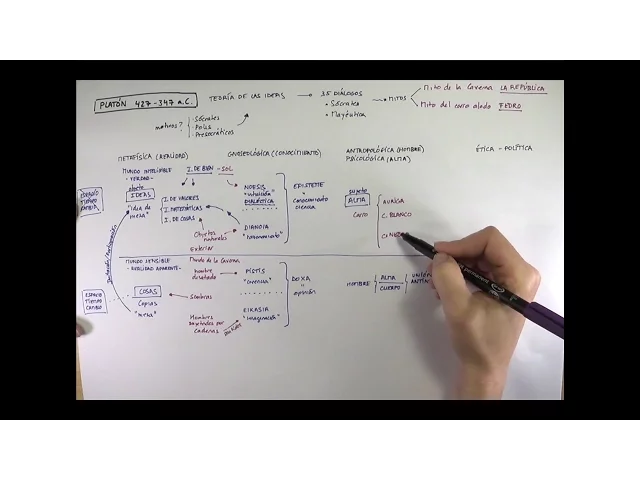 PLATÓN 427-347 a.C.
TEORÍA DE LAS IDEAS
35 DIÁLOGOS
• Sócrates
• Mayéutica
MITOS
Mito de la Caverna LA REPÚBLICA
Mito del carro alado FEDRO
motivos?
Sócrates
Polis
Presocráticos
METAFÍSICA (REALIDAD)
GNOSEOLÓGICA (CONOCIMIENTO)
ANTROPOLÓGICA (HOMBRE)
PSICOLÓGICA (ALMA)
ÉTICA - POLÍTICA
MUNDO INTELIGIBLE
- VERDAD -
objeto
IDEAS
"idea de
mesa"
I. DE BIEN - SOL
I. DE VALORES
I. MATEMÁTICAS
I. DE COSAS
Objetos
naturales
Exterior
NOESIS
"intuición"
DIALÉCTICA
DIANOIA
"razonamiento"
EPISTEME
conocimiento
ciencia
sujeto
ALMA
Carro
AURIGA
C. BLANCO
MUNDO SENSIBLE
- REALIDAD APARENTE -
Mundo de la Caverna
hombre
desatado
COSAS
Copias
"mesa"
Sombras
Hombres
sujetados por
cadenas
PISTIS
"creencia"
EIKASIA
"imaginación"
DOXA
opinión
ESPACIO
TIEMPO
CAMBIO
HOMBRE
ALMA
CUERPO